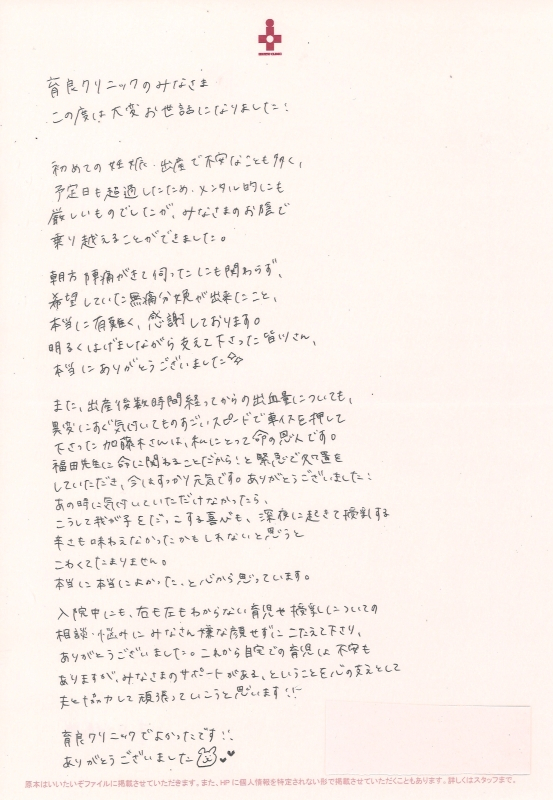 育良クリニックのみなさま
この度は大変お世話になりました!
初めての妊娠・出産で不安なことも多く、
予定日も超過したため、メンタル的にも
厳しいものでしたが、みなさまのお陰で
乗り越えることができました。
朝方陣痛がきて伺ったにも関わらず、
希望していた無痛分娩が出来たこと、
本当に有難く、感謝しております。
明るくはげましながら支えて下さった皆川さん、
本当にありがとうございました
また、出産後数時間経ってからの出血量についても、
異変にすぐ気付いてものすごいスピードで車イスを押して
下さった加藤木さんは、私にとって命の恩人です。
福田先生に命に関わることだから!と緊急で処置を
していただき、今はすっかり元気です。ありがとうございました!
あの時に気付いていただけなかったら、
こうして我が子をだっこする喜びも、深夜に起きて授乳する
辛さも味わえなかったかもしれないと思うと
こわくてたまりません。
本当に本当によかった、と心から思っています。
入院中にも、右も左もわからない育児や授乳についての
相談・悩みにみなさん嫌な顔せずにこたえて下さり、
ありがとうございました。これから自宅での育児は不安も
ありますが、みなさまのサポートがある、ということを心の支えとして
夫と協力して頑張っていこうと思います!!
育良クリニックでよかったです!!
ありがとうございました
原本はいいたいぞファイルに掲載させていただきます。また、HPに個人情報を特定されない形で掲載させていただくこともあります。詳しくはスタッフまで。